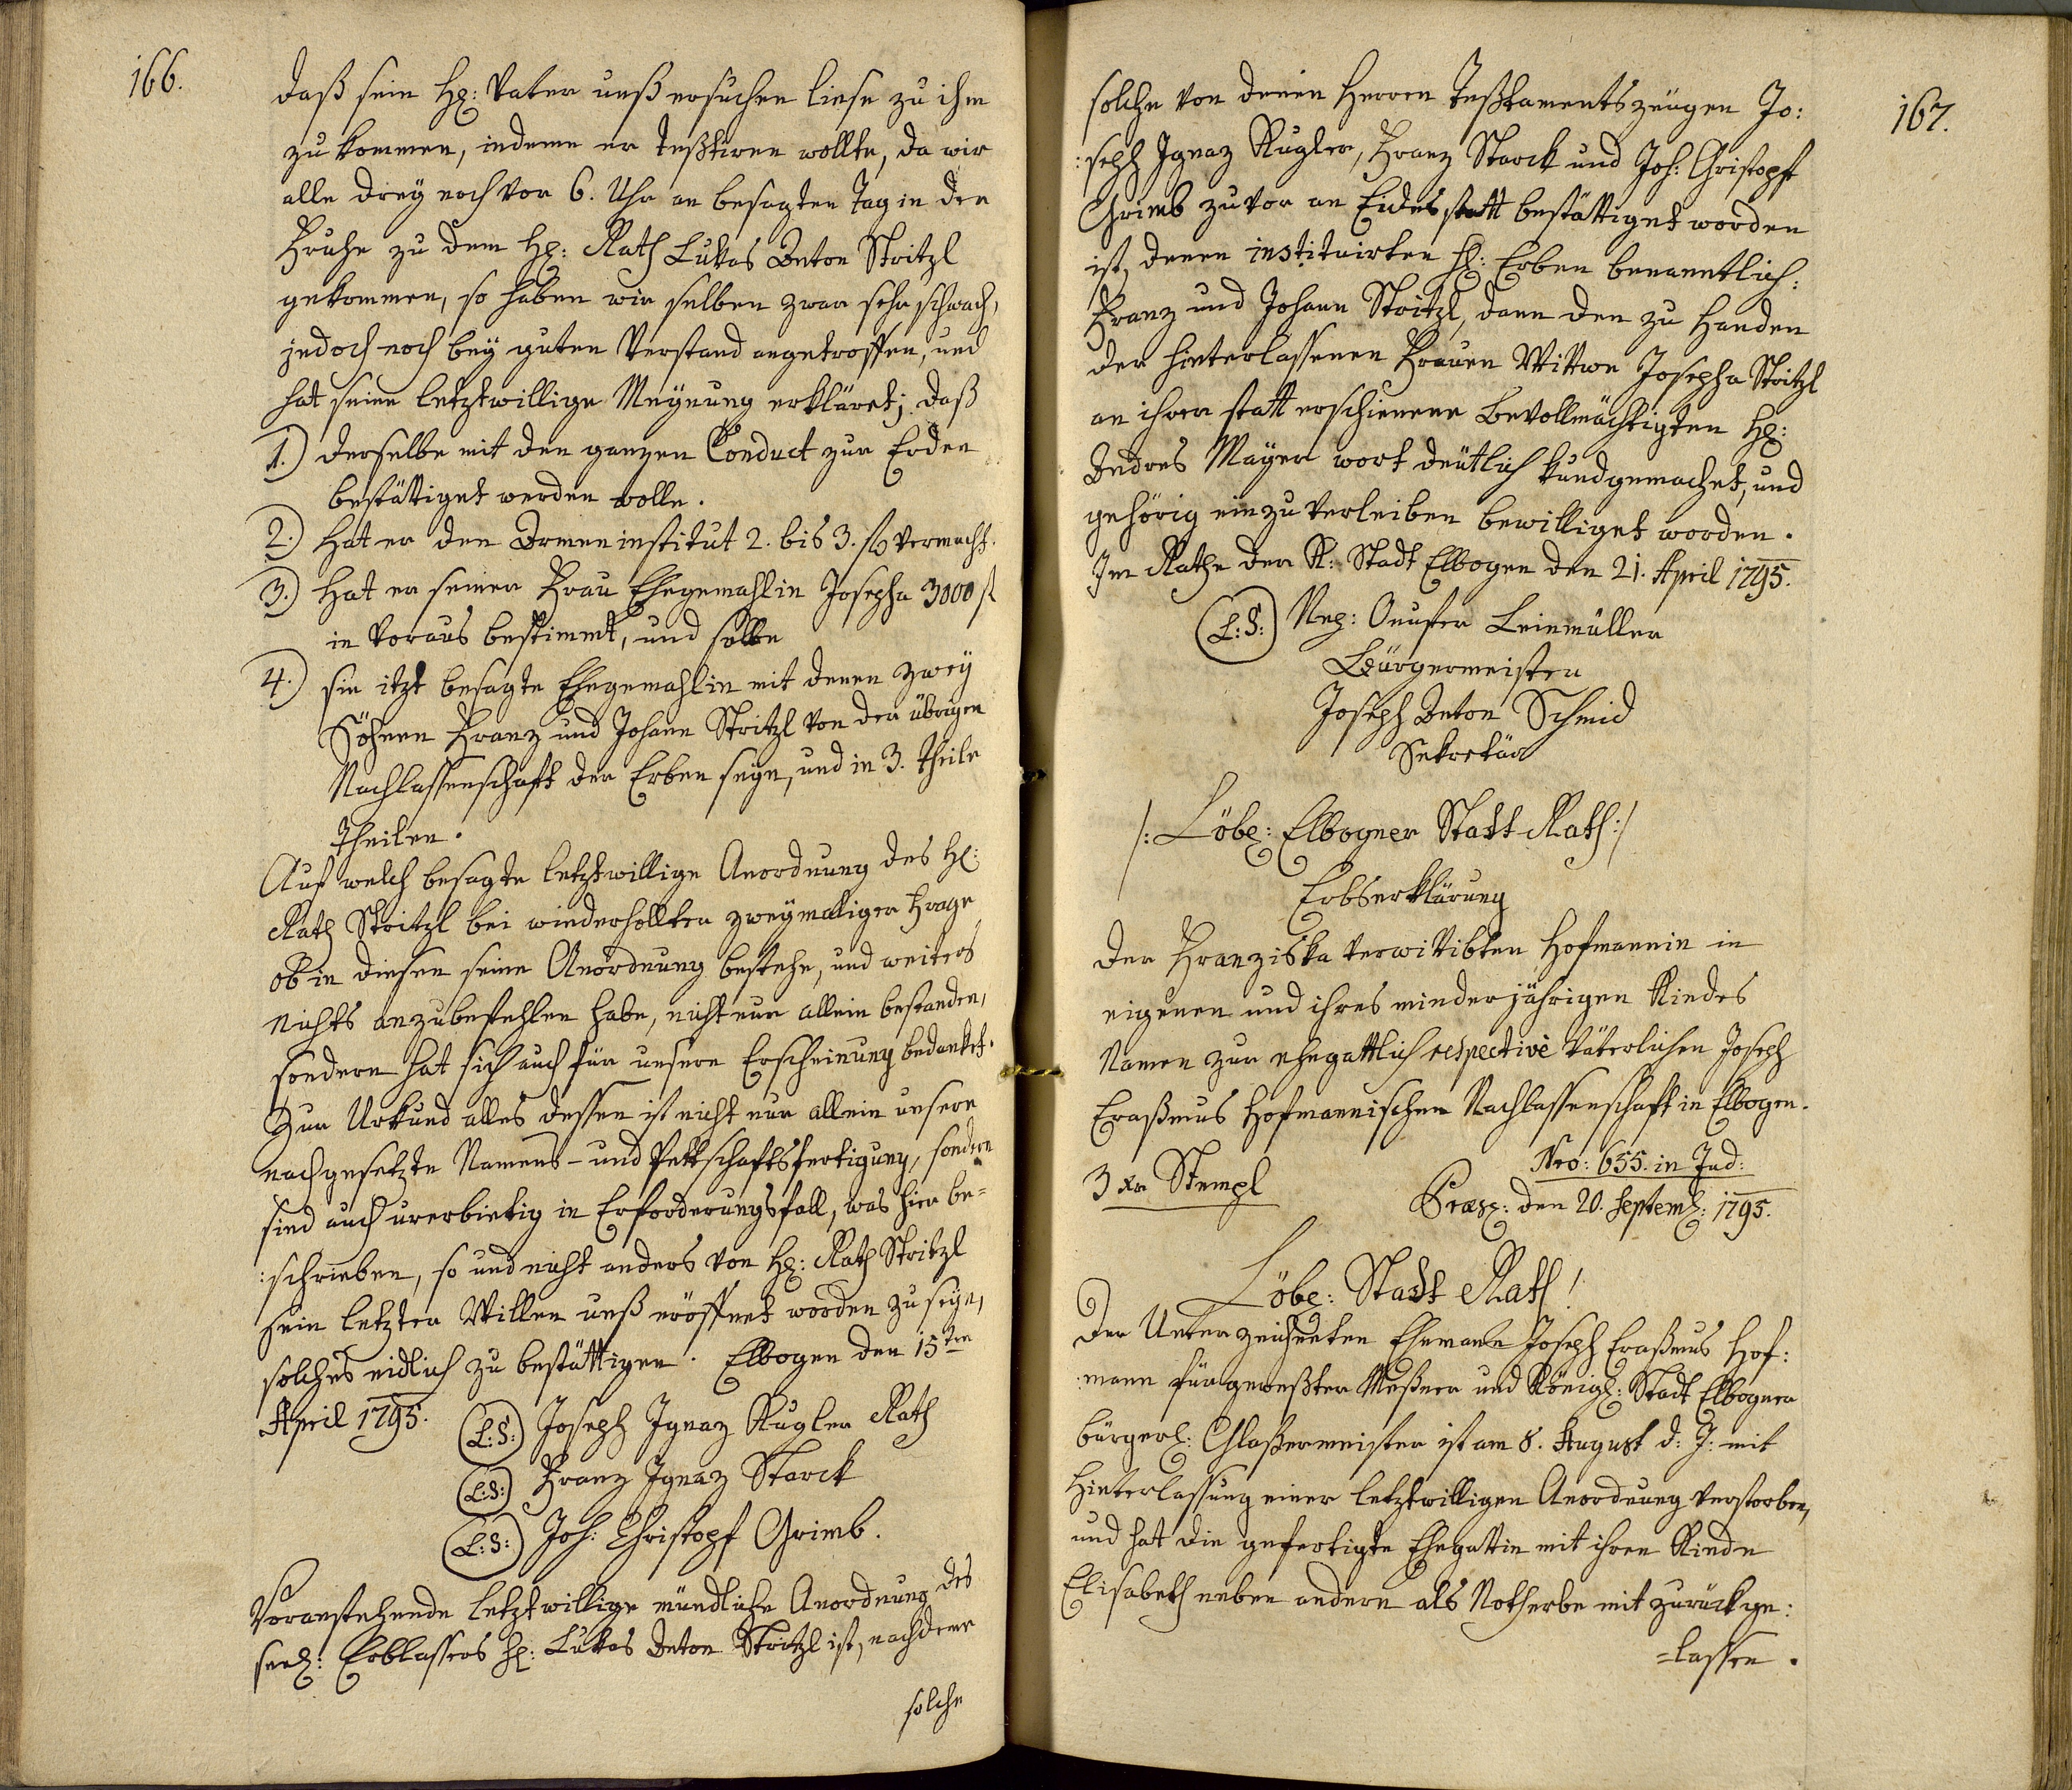 166.
daß sein H: Vater unß ersuchen liese zu ihm
zu kommen, indeme er Teßtiren wollte, da wir
alle drey noch vor 6. Uhr an besagten Tag in der
Fruhe zu dem H: Rath Lukas Anton Stritzl
gekommen, so haben wir selben zwar sehr schwach,
jedoch noch bey guten Verstand angetroffen, und
hat seine letztwillige Meynung erkläret; daß
1.) derselbe mit den ganzen Conduct zur Erden
bestättiget werden wolle.
2.) Hat er den Armeninstitut 2. bis 3. fl vermacht.
3.) Hat er seiner Frau Ehegemahlin Josepha 3000 fl
in voraus bestimmt, und solle
4.) sie itzt besagte Ehegemahlin mit denen zwey
Söhnen Franz und Johann Stritzl von der übrigen
Nachlassenschaft der Erben seyn, und in 3. Theile
Theilen.
Auf welch besagte letztwillige Anordnung des H:
Rath Stritzl bei wiederhollter zweymaliger Frage
ob in diesen seine Anordnung bestehe, und weiters
nichts anzubefehlen habe, nicht nur allein bestanden,
sondern hat sich auch für unsere Erscheinung bedanket.
Zur Urkund alles dessen ist nicht nur allein unsere
nachgesetzte Namens- und Pettschaftsfertigung, sondern
sind auch urerbietig in Erforderungsfall, was hier be=
:schrieben, so und nicht anders von H: Rath Stritzl
sein letzter Willen unß eröffnet worden zu seyn,
solches eidlich zu bestättigen. Elbogen den 15ten
April 1795.
(L:S:) Joseph Ignaz Kugler Rath
(L:S:) Franz Ignaz Starck
(L:S:) Joh: Christopf Grimb.
Voranstehende letztwillige mündliche Anordnung des
seel: Erblassers H: Lukas Anton Stritzl ist, nachdeme
solche
167.
solche von denen Herren Teßtamentszeugen Jo:
:seph Ignaz Kugler, Franz Starck und Joh: Christopf
Grimb zuvor an Eides statt bestättiget worden
ist, denen instituirten H: Erben benanntlich:
Franz und Johann Stritzl, dann den zu Handen
der hinterlassenen Frauen Wittwe Josepha Stritzl
an ihrer statt erschienenen Bevollmächtigten H:
Andres Mayer wort deutlich kundgemachet, und
gehörig einzuverleiben bewilliget worden.
Im Rathe der K: Stadt Elbogen den 21. April 1795.
(L:S:) Nep: Onufer Leinmüller
Bürgermeister
Joseph Anton Schmid
Sekretär
/: Löbl: Elbogner Stadt Rath :/
Erbserklärung
der Franziska verwittibten Hofmannin in
eigenen und ihres minderjährigen Kindes
Namen zur ehegattlich respective väterlichen Joseph
Eraßmus Hofmannischen Nachlassenschaft in Elbogen.
Nro: 655. in Jud:
3 xr Stempl
Præs: den 20. Septemb: 1795.
Löbl: Stadt Rath!
Der Unterzeichneten Ehemann Joseph Eraßmus Hof:
:mann fürgeweßter Meßner und Königl: Stadt Elbogner
bürgerl: Glaßermeister ist am 8. August d: J: mit
Hinterlassung einer letztwilligen Anordnung verstorben,
und hat die gefertigte Ehegattin mit ihren Kinde
Elisabeth neben andern als Notherbe mit zurückge:
=lassen.